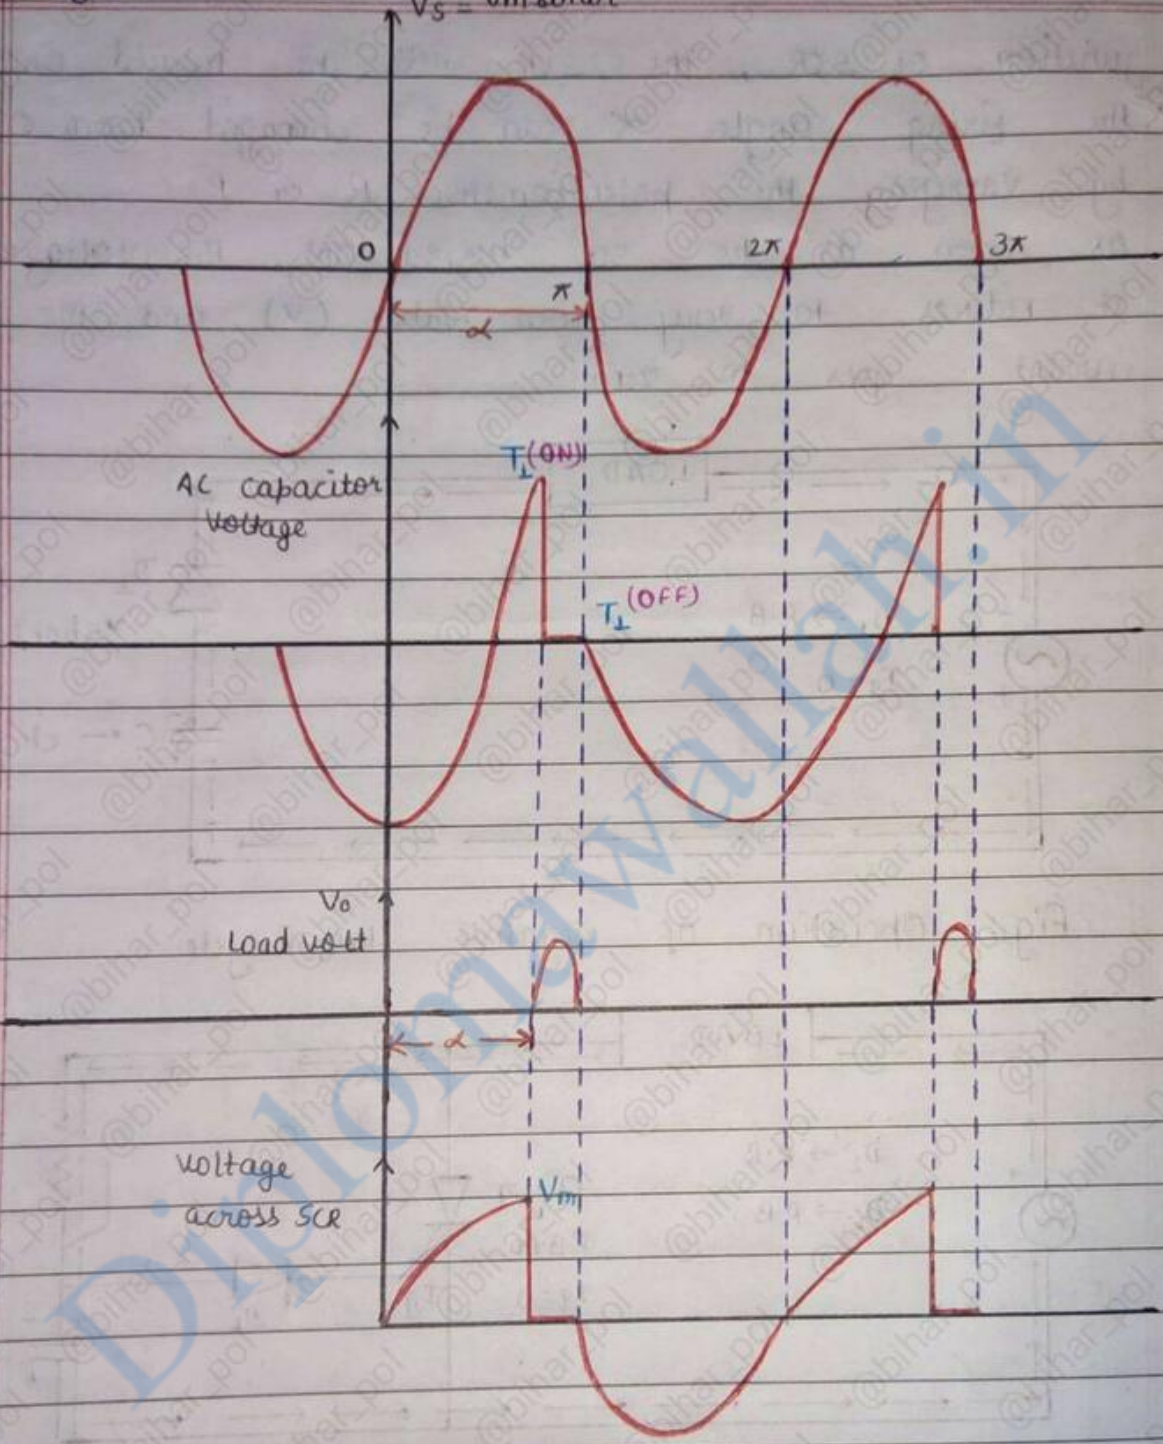 Vs = Vm sinωt
0
2π
3π
π
α
T1 (ON)
AC capacitor
voltage
T1 (OFF)
Vo
Load volt
α
voltage
across SCR
Vm
Diplomawallah.in
@bihar_pol